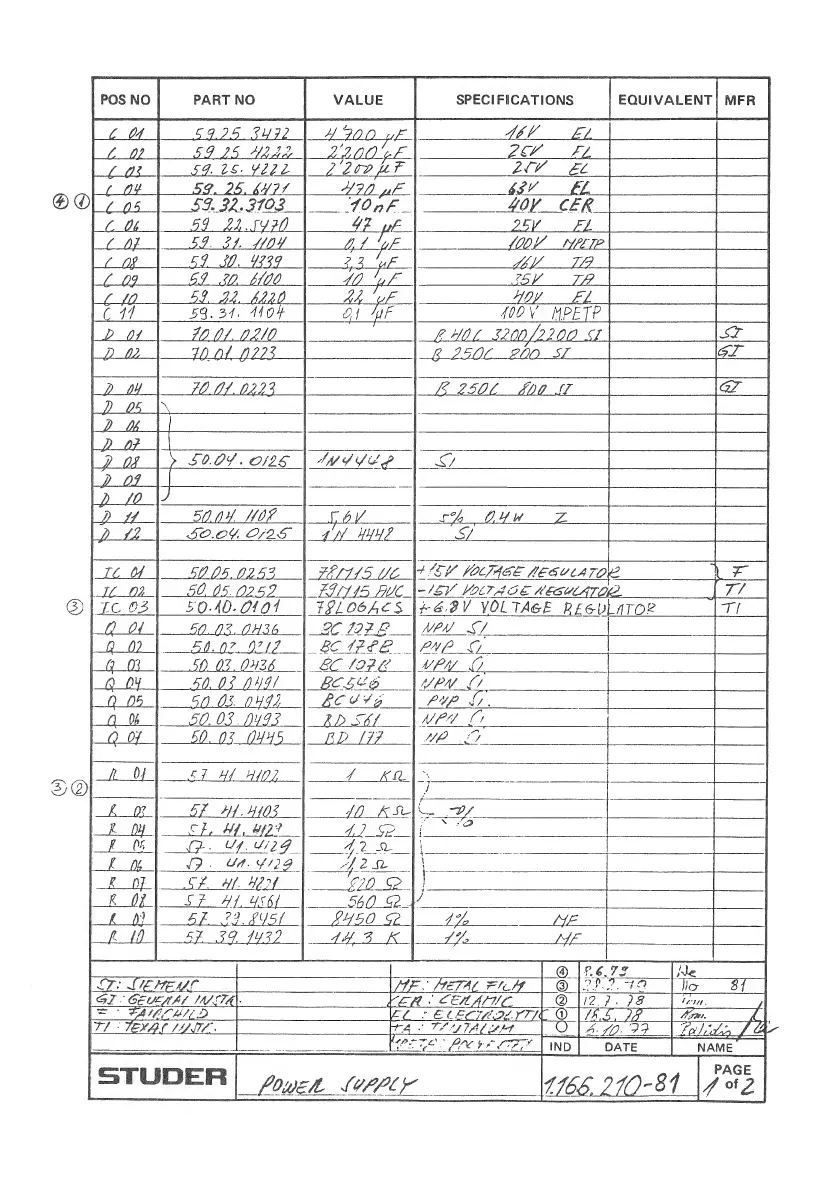 POS NO PART NO VALUE SPECIFICATIONS EQUIVALENT MFR
C 01 59.25.3472 4'700 µF 16V EL
C 02 59.25.4222 2'200 µF 25V EL
C 03 59.25.4222 2'200 µF 25V EL
C 04 59.25.6471 470 µF 63V EL
④ ① C 05 59.32.3103 10nF 40V CER
C 06 59.22.5470 47 µF 25V EL
C 07 59.31.1104 0,1 µF 100V MPETP
C 08 59.30.4339 3,3 µF 16V TA
C 09 59.30.6100 10 µF 35V TA
C 10 59.22.6220 22 µF 40V EL
C 11 59.31.1104 0,1 µF 100V MPETP
D 01 70.01.0210 B 40C 3200/2200 SI SI
D 02 70.01.0223 B 250C 800 SI GI
D 04 70.01.0223 B 250C 800 SI GI
D 05
D 06
D 07
D 08 50.04.0125 1N4448 SI
D 09
D 10
D 11 50.04.1108 5,6V 5% 0,4W Z
D 12 50.04.0125 1N 4448 SI
IC 01 50.05.0253 78M15 UC +15V VOLTAGE REGULATOR F
IC 02 50.05.0252 79M15 AUC -15V VOLTAGE REGULATOR TI
③ IC 03 50.10.0101 78L06ACS +6.8V VOLTAGE REGULATOR TI
Q 01 50.03.0436 BC 107B NPN SI
Q 02 50.03.0312 BC 178B PNP SI
Q 03 50.03.0436 BC 107B NPN SI
Q 04 50.03.0491 BC546 NPN SI
Q 05 50.03.0492 BC 446 PNP SI.
Q 06 50.03.0493 BD 561 NPN SI
Q 07 50.03.0445 BD 177 NP SI
R 01 57.41.4102 1 KΩ
③ ②
R 03 57.41.4103 10 KΩ 5%
R 04 57.41.4129 1,2 Ω
R 05 57.41.4129 1,2 Ω
R 06 57.41.4129 1,2 Ω
R 07 57.41.4821 820 Ω
R 08 57.41.4561 560 Ω
R 09 57.39.8451 8450 Ω 1% MF
R 10 57.39.1432 14,3 K 1% MF
SI: SIEMENS MF: METAL FILM ④ 8.6.79
GI: GENERAL INSTR. CER: CERAMIC ③ 81
F: FAIRCHILD EL: ELECTROLYTIC ② 12.7.78
TI: TEXAS INSTR. TA: TANTALUM ① 18.5.78
MPETP: POLYESTER ○ 6.10.77
IND DATE NAME
STUDER POWER SUPPLY 1.166.210-81 PAGE
1 of 2